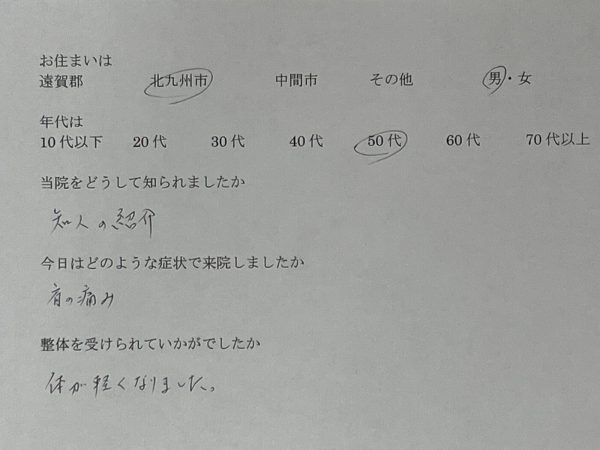 お住まいは
遠賀郡 北九州市 中間市 その他 男・女
年代は
10代以下 20代 30代 40代 50代 60代 70代以上
当院をどうして知られましたか
知人の紹介
今日はどのような症状で来院しましたか
首の痛み
整体を受けられていかがでしたか
体が軽くなりました。